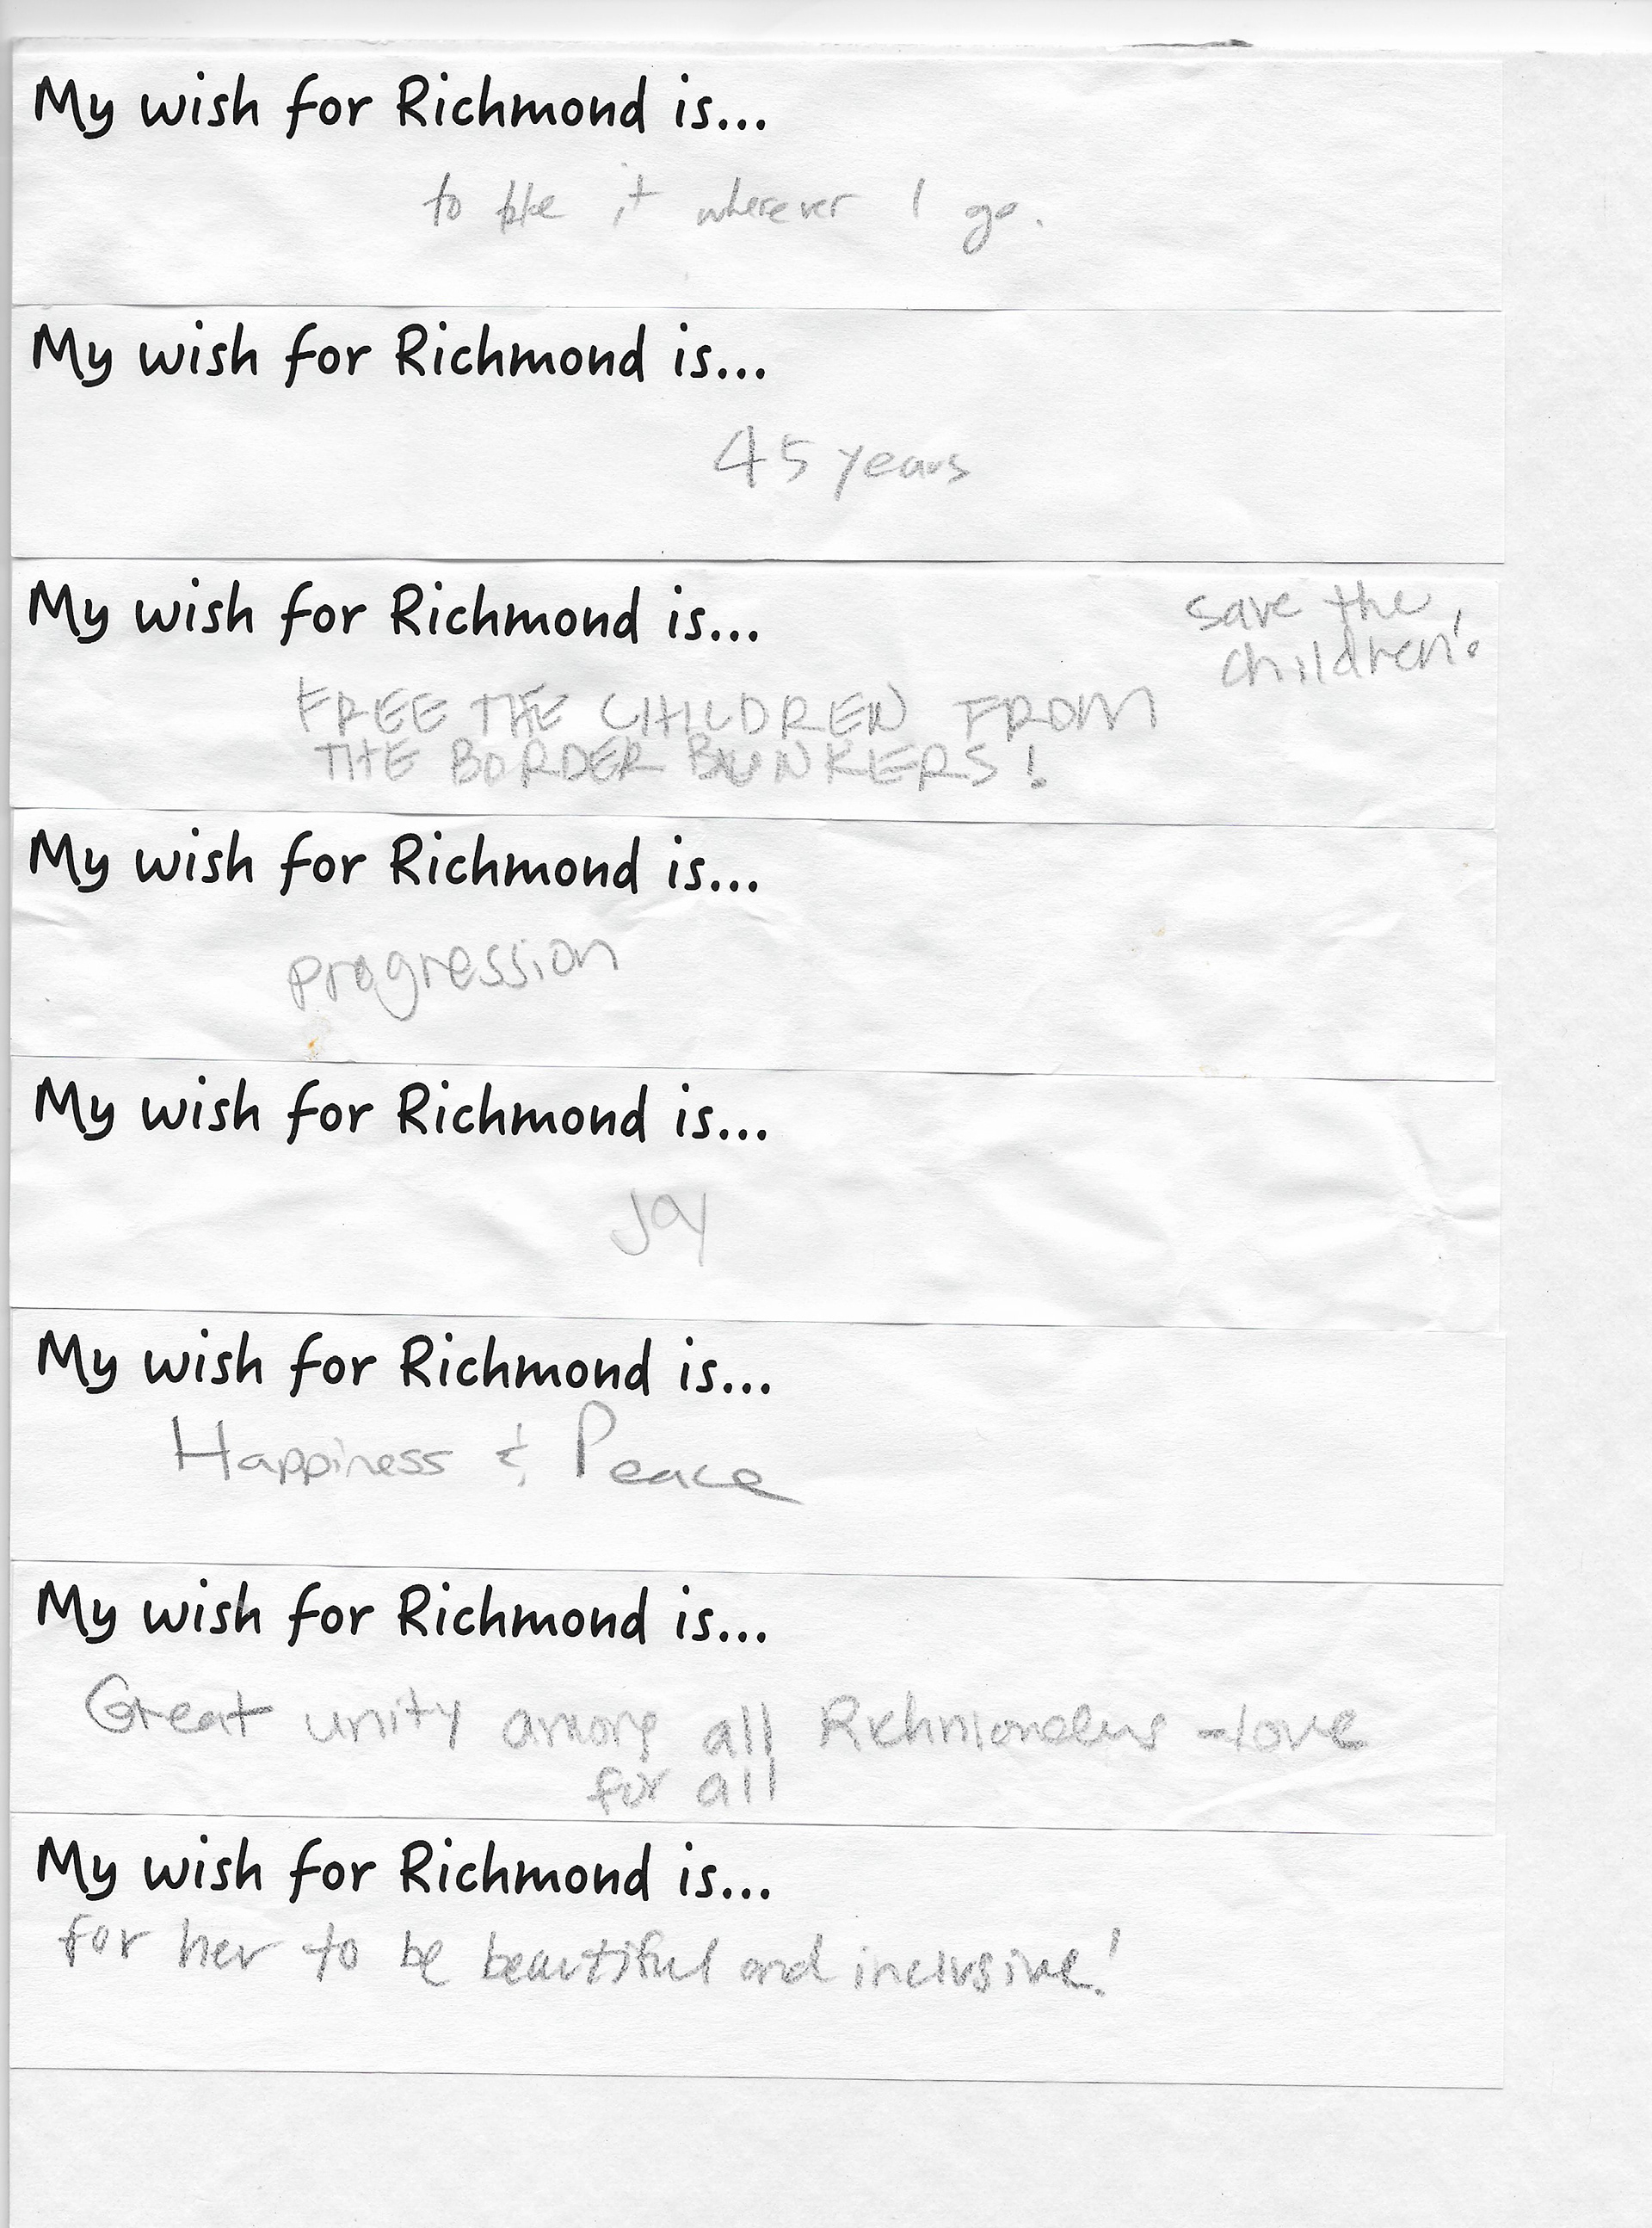 My wish for Richmond is...
to take it wherever I go.
My wish for Richmond is...
45 years
My wish for Richmond is...
save the
children!
FREE THE CHILDREN FROM
THE BORDER BUNKERS!
My wish for Richmond is...
progression
My wish for Richmond is...
Joy
My wish for Richmond is...
Happiness & Peace
My wish for Richmond is...
Great unity among all Richmonders - love
for all
My wish for Richmond is...
for her to be beautiful and inclusive!